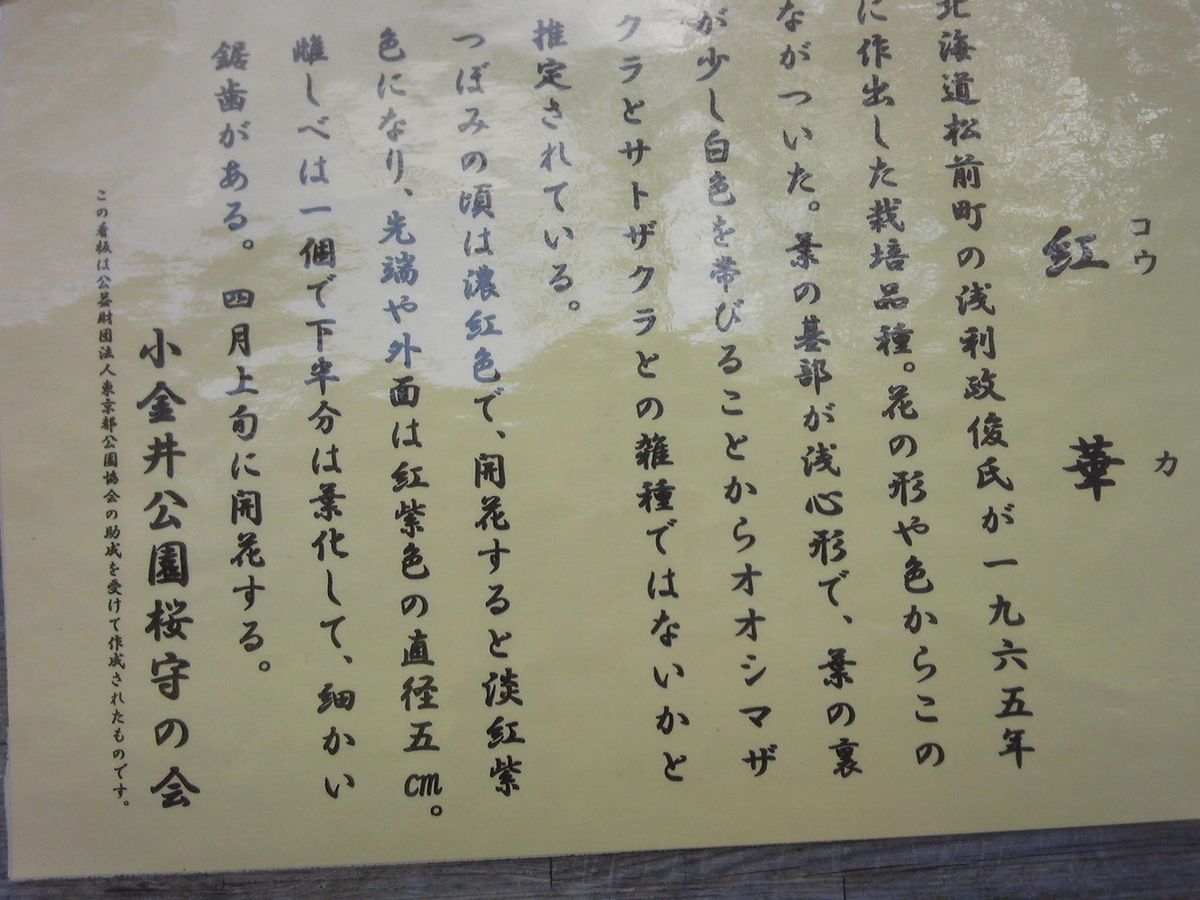 コウカ
紅華
北海道松前町の浅利政俊氏が一九六五年
に作出した栽培品種。花の形や色からこの
ながついた。葉の基部が浅心形で、葉の裏
が少し白色を帯びることからオオシマザ
クラとサトザクラとの雑種ではないかと
推定されている。
つぼみの頃は濃紅色で、開花すると淡紅紫
色になり、先端や外面は紅紫色の直径五㎝。
雌しべは一個で下半分は葉化して、細かい
鋸歯がある。四月上旬に開花する。
小金井公園桜守の会
この看板は公益財団法人東京都公園協会の助成を受けて作成されたものです。